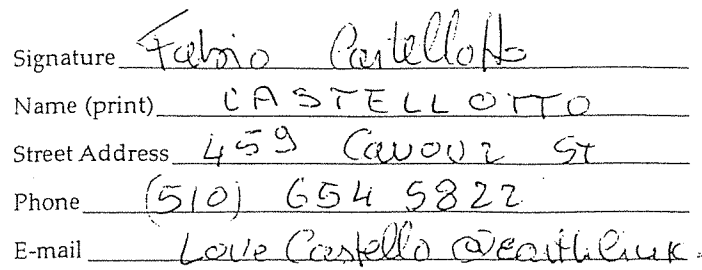 Signature Fabio Castellotto
Name (print) CASTELLOTTO
Street Address 459 Cavour St
Phone (510) 654 5822
E-mail Love Castello @earthlink.